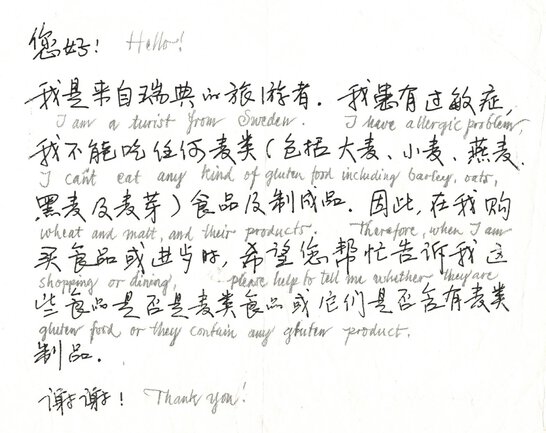 您好! Hello!
我是来自瑞典的旅游者. 我患有过敏症,
I am a turist from Sweden. I have allergic problem,
我不能吃任何麦类(包括大麦、小麦、燕麦.
I can't eat any kind of gluten food including barley, oats,
黑麦及麦芽)食品及制成品. 因此,在我购
wheat and malt, and their products. Therefore, when I am
买食品或进步时,希望您帮忙告诉我这
shopping or dining, please help to tell me whether they are
些食品是否是麦类食品或它们是否含有麦类
gluten food or they contain any gluten product.
制品.
谢谢! Thank you!